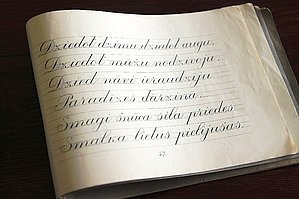 Dziedot dzimu, dziedot augu,
Dziedot mūžu nodzīvoju;
Dzied nāvi ieraudziju
Paradīzes dārziņā.
Smagi šņāca sila priedes
Smalka lietus pielijušas.
57.